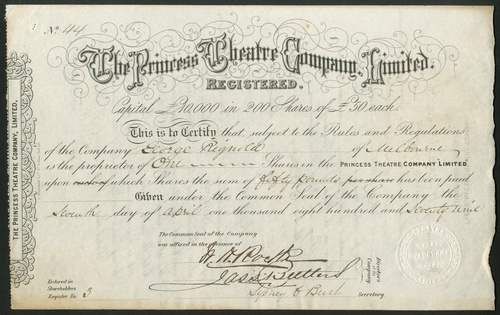 No. 44
The Princess Theatre Company, Limited.
REGISTERED.
Capital £10,000 in 200 Shares of £50 each.
This is to Certify that, subject to the Rules and Regulations
of the Company George Reynolds of Melbourne
is the proprietor of One Shares in the PRINCESS THEATRE COMPANY LIMITED
upon each of which Shares the sum of fifty Pounds per share has been paid
Given under the Common Seal of the Company the
Seventh day of April one thousand eight hundred and Seventy nine
The Common Seal of the Company
was affixed in the presence of
Directors
of the
Company
Sydney Bush Secretary
Entered in
Shareholders
Register Fo. 2
THE PRINCESS THEATRE COMPANY, LIMITED.